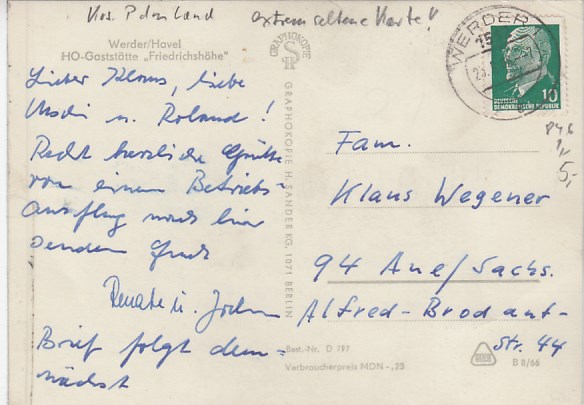 extrem seltene Karte!
Werder/Havel
HO-Gaststätte „Friedrichshöhe"
Lieber Klaus, liebe
Uschi u. Roland!
Recht herzliche Grüße
von einem Betriebs-
ausflug nach hier
senden Euch
Renate u. Jochen
Brief folgt dem=
nächst
GRAPHOKOPIE
GRAPHOKOPIE H. SANDER KG, 1071 BERLIN
WERDER
15
10
DEUTSCHE
DEMOKRATISCHE REPUBLIK
5,-
Fam.
Klaus Wegener
94 Aue/Sachs.
Alfred-Brodaut-
Str. 44
Best.-Nr. D 797
Verbraucherpreis MDN -,25
B 8/66